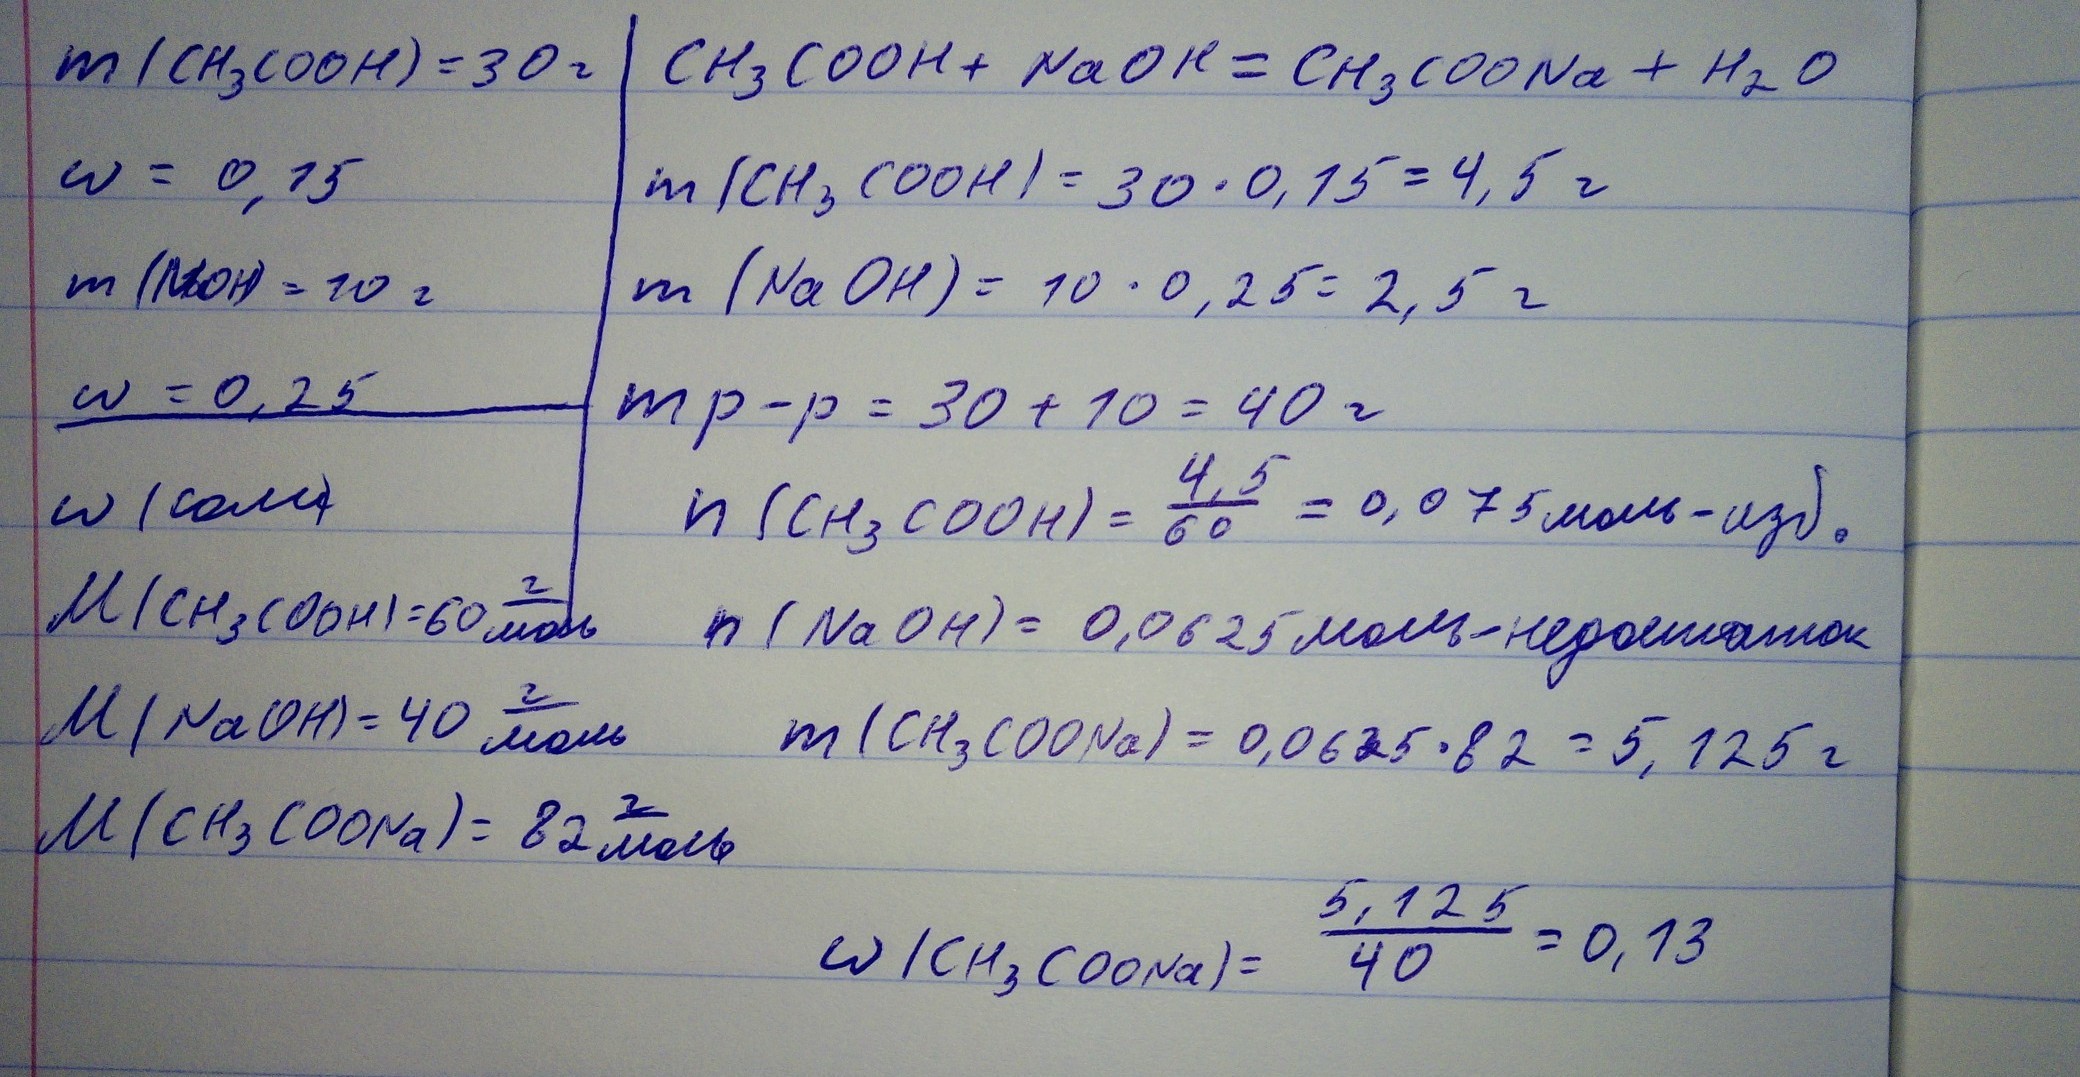 m(CH₃COOH) = 30 г
w = 0,15
m(NaOH) = 10 г
w = 0,25
w (соли)
M(CH₃COOH) = 60 г/моль
M(NaOH) = 40 г/моль
M(CH₃COONa) = 82 г/моль
CH₃COOH + NaOH = CH₃COONa + H₂O
m(CH₃COOH) = 30 · 0,15 = 4,5 г
m(NaOH) = 10 · 0,25 = 2,5 г
m р-р = 30 + 10 = 40 г
n(CH₃COOH) = 4,5/60 = 0,075 моль - изб.
n(NaOH) = 0,0625 моль - недостаток
m(CH₃COONa) = 0,0625 · 82 = 5,125 г
w(CH₃COONa) = 5,125/40 = 0,13